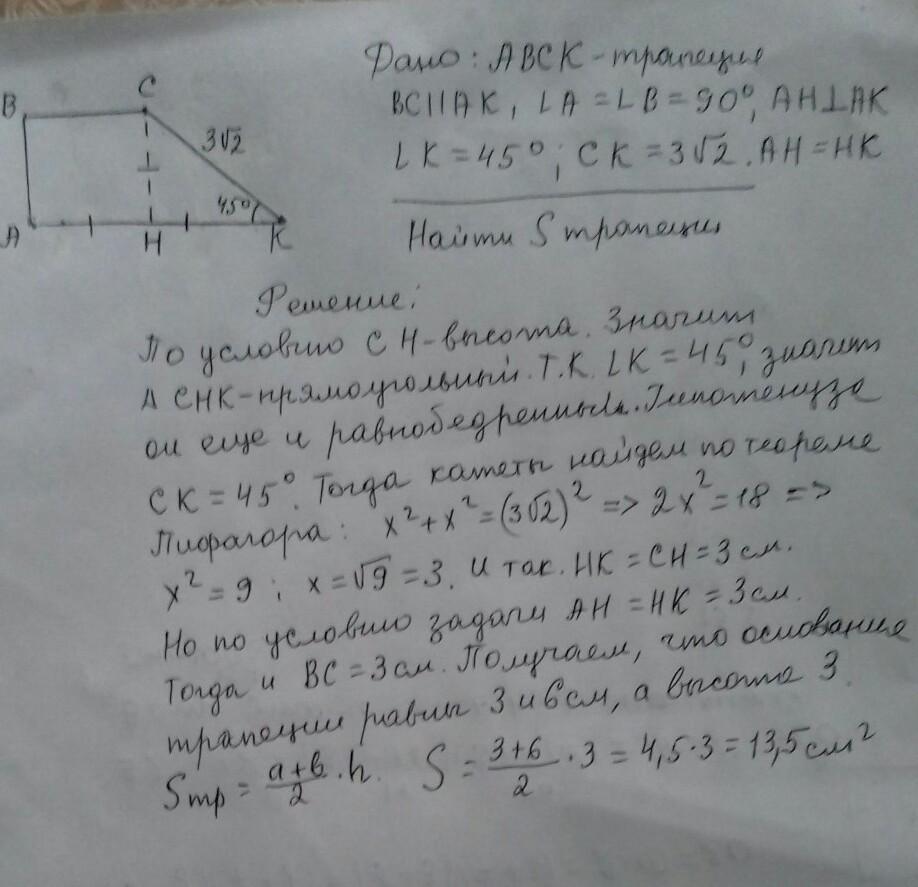 Дано: ABCK - трапеция
BC||AK, ∠A = ∠B = 90°, AH⊥AK
∠K = 45°; CK = 3√2. AH = HK
Найти S трапеции
B
C
3√2
45°
A
H
K
Решение:
По условию CH - высота. Значит
Δ CHK - прямоугольный. Т.К. ∠K = 45°, значит
он еще и равнобедренный. Гипотенуза
CK = 45°. Тогда катеты найдем по теореме
Пифагора: x² + x² = (3√2)² => 2x² = 18 =>
x² = 9; x = √9 = 3. И так. HK = CH = 3 см.
Но по условию задачи AH = HK = 3 см.
Тогда и BC = 3 см. Получаем, что основание
трапеции равны 3 и 6 см, а высота 3.
Sтр = a+b/2 · h. S = 3+6/2 · 3 = 4,5·3 = 13,5 см²